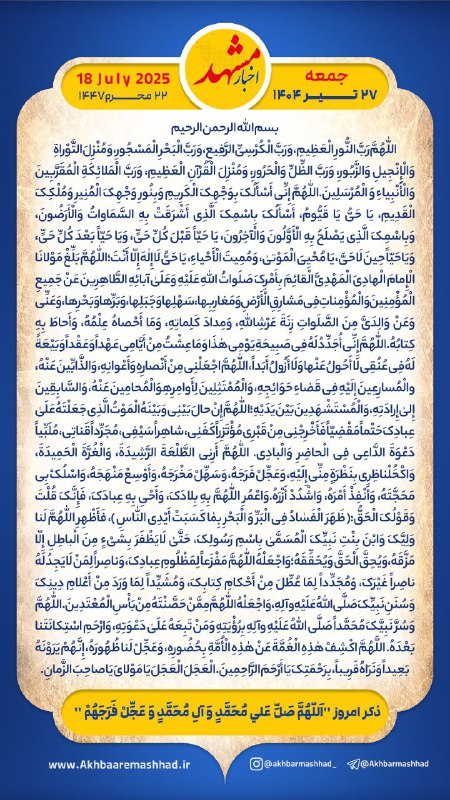 اخبار مشهد
جمعه
۲۷ تیر ۱۴۰۴
18 July 2025
۲۲ محرم ۱۴۴۷
بسم الله الرحمن الرحیم
اللّٰهُمَّ رَبَّ النُّورِ الْعَظِیمِ، وَرَبَّ الْکُرْسِیِّ الرَّفِیعِ، وَرَبَّ الْبَحْرِ الْمَسْجُورِ، وَمُنْزِلَ التَّوْراةِ
وَالْإِنْجِیلِ وَالزَّبُورِ، وَرَبَّ الظِّلِّ وَالْحَرُورِ، وَمُنْزِلَ الْقُرْآنِ الْعَظِیمِ، وَرَبَّ الْمَلائِکَةِ الْمُقَرَّبِینَ
وَالْأَنْبِیاءِ وَالْمُرْسَلِینَ. اللّٰهُمَّ إِنِّی أَسْأَلُکَ بِوَجْهِکَ الْکَرِیمِ وَبِنُورِ وَجْهِکَ الْمُنِیرِ وَمُلْکِکَ
الْقَدِیمِ، یَا حَیُّ یَا قَیُّومُ، أَسْأَلُکَ بِاسْمِکَ الَّذِی أَشْرَقَتْ بِهِ السَّمَاوَاتُ وَالْأَرَضُونَ،
وَبِاسْمِکَ الَّذِی یَصْلَحُ بِهِ الْأَوَّلُونَ وَالْآخِرُونَ، یَا حَیّاً قَبْلَ کُلِّ حَیٍّ، وَیَا حَیّاً بَعْدَ کُلِّ حَیٍّ،
وَیَا حَیّاً حِینَ لَا حَیَّ، یَا مُحْیِیَ الْمَوْتىٰ، وَمُمِیتَ الْأَحْیاءِ، یَا حَیُّ لَا إِلٰهَ إِلّا أَنْتَ؛ اللّٰهُمَّ بَلِّغْ مَوْلانَا
الْإِمامَ الْهادِیَ الْمَهْدِیَّ الْقائِمَ بِأَمْرِکَ صَلَواتُ اللّٰهِ عَلَیْهِ وَعَلَىٰ آبائِهِ الطَّاهِرِینَ عَنْ جَمِیعِ
الْمُؤْمِنِینَ وَالْمُؤْمِناتِ فِی مَشارِقِ الْأَرْضِ وَمَغارِبِها، سَهْلِها وَجَبَلِها، وَبَرِّها وَبَحْرِها، وَعَنِّی
وَعَنْ وَالِدَیَّ مِنَ الصَّلَواتِ زِنَةَ عَرْشِ اللّٰهِ، وَمِدادَ کَلِماتِهِ، وَمَا أَحْصاهُ عِلْمُهُ، وَأَحاطَ بِهِ
کِتابُهُ. اللّٰهُمَّ إِنِّی أُجَدِّدُ لَهُ فِی صَبِیحَةِ یَوْمِی هٰذَا وَمَا عِشْتُ مِنْ أَیَّامِی عَهْداً وَعَقْداً وَبَیْعَةً
لَهُ فِی عُنُقِی لَا أَحُولُ عَنْها وَلَا أَزُولُ أَبَداً. اللّٰهُمَّ اجْعَلْنِی مِنْ أَنْصارِهِ وَأَعْوانِهِ، وَالذَّابِّینَ عَنْهُ،
وَالْمُسارِعِینَ إِلَیْهِ فِی قَضاءِ حَوَائِجِهِ، وَالْمُمْتَثِلِینَ لِأَوامِرِهِ، وَالْمُحامِینَ عَنْهُ، وَالسَّابِقِینَ
إِلى إِرادَتِهِ، وَالْمُسْتَشْهَدِینَ بَیْنَ یَدَیْهِ؛ اللّٰهُمَّ إِنْ حالَ بَیْنِی وَبَیْنَهُ الْمَوْتُ الَّذِی جَعَلْتَهُ عَلَىٰ
عِبادِکَ حَتْماً مَقْضِیّاً فَأَخْرِجْنِی مِنْ قَبْرِی مُؤْتَزِراً کَفَنِی، شاهِراً سَیْفِی، مُجَرِّداً قَناتِی، مُلَبِّیاً
دَعْوَةَ الدَّاعِی فِی الْحاضِرِ وَالْبادِی. اللّٰهُمَّ أَرِنِی الطَّلْعَةَ الرَّشِیدَةَ، وَالْغُرَّةَ الْحَمِیدَةَ،
وَاکْحُلْ ناظِرِی بِنَظْرَةٍ مِنِّی إِلَیْهِ، وَعَجِّلْ فَرَجَهُ، وَسَهِّلْ مَخْرَجَهُ، وَأَوْسِعْ مَنْهَجَهُ، وَاسْلُکْ بِی
مَحَجَّتَهُ، وَأَنْفِذْ أَمْرَهُ، وَاشْدُدْ أَزْرَهُ، وَاعْمُرِ اللّٰهُمَّ بِهِ بِلادَکَ، وَأَحْیِ بِهِ عِبادَکَ، فَإِنَّکَ قُلْتَ
وَقَوْلُکَ الْحَقُّ: ﴿ ظَهَرَ الْفَسادُ فِی الْبَرِّ وَ الْبَحْرِ بِما کَسَبَتْ أَیْدِی النَّاسِ ﴾، فَأَظْهِرِ اللّٰهُمَّ لَنا
وَلِیَّکَ وَابْنَ بِنْتِ نَبِیِّکَ الْمُسَمَّىٰ بِاسْمِ رَسُولِکَ، حَتَّىٰ لَا یَظْفَرَ بِشَیْءٍ مِنَ الْباطِلِ إِلّا
مَزَّقَهُ، وَیُحِقَّ الْحَقَّ وَیُحَقِّقَهُ؛ وَاجْعَلْهُ اللّٰهُمَّ مَفْزَعاً لِمَظْلُومِ عِبادِکَ، وَناصِراً لِمَنْ لَا یَجِدُ لَهُ
ناصِراً غَیْرَکَ، وَمُجَدِّداً لِمَا عُطِّلَ مِنْ أَحْکامِ کِتابِکَ، وَمُشَیِّداً لِمَا وَرَدَ مِنْ أَعْلامِ دِینِکَ
وَسُنَنِ نَبِیِّکَ صَلَّى اللّٰهُ عَلَیْهِ وَآلِهِ، وَاجْعَلْهُ اللّٰهُمَّ مِمَّنْ حَصَّنْتَهُ مِنْ بَأْسِ الْمُعْتَدِینَ. اللّٰهُمَّ
وَسُرَّ نَبِیَّکَ مُحَمَّداً صَلَّى اللّٰهُ عَلَیْهِ وَآلِهِ بِرُؤْیَتِهِ وَمَنْ تَبِعَهُ عَلَىٰ دَعْوَتِهِ، وَارْحَمِ اسْتِکانَتَنا
بَعْدَهُ. اللّٰهُمَّ اکْشِفْ هٰذِهِ الْغُمَّةَ عَنْ هٰذِهِ الْأُمَّةِ بِحُضُورِهِ، وَعَجِّلْ لَنا ظُهُورَهُ، إِنَّهُمْ یَرَوْنَهُ
بَعِیداً وَنَرَاهُ قَرِیباً، بِرَحْمَتِکَ یَا أَرْحَمَ الرَّاحِمِینَ. الْعَجَلَ الْعَجَلَ یَا مَوْلایَ یَا صاحِبَ الزَّمانِ.
ذکر امروز "اَللّهُمَّ صَلِّ عَلي مُحَمَّدٍ وَ آلِ مُحَمَّدٍ وَ عَجِّلْ فَرَجَهُمْ "
www.Akhbaaremashhad.ir
@akhbarmashhad_
@Akhbarmashhad